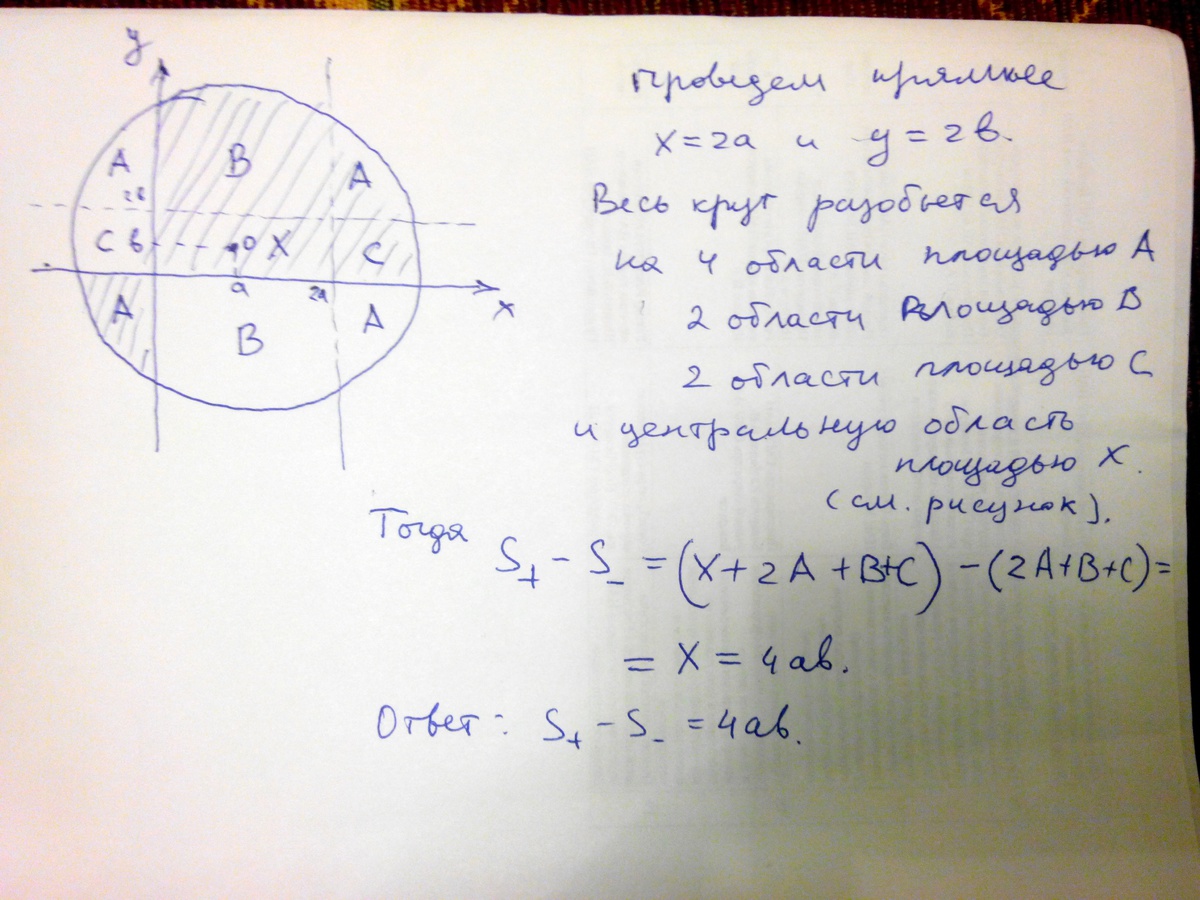 y
A
B
A
2в
C
в
O
X
C
a
2a
x
A
B
A
Проведем прямые
x = 2a и y = 2в.
Весь круг разобьется
на 4 области площадью A
2 области площадью B
2 области площадью C
и центральную область
площадью X.
(см. рисунок).
Тогда
S₊ − S₋ = (X + 2A + B+C) − (2A+B+C) =
= X = 4aв.
Ответ: S₊ − S₋ = 4aв.